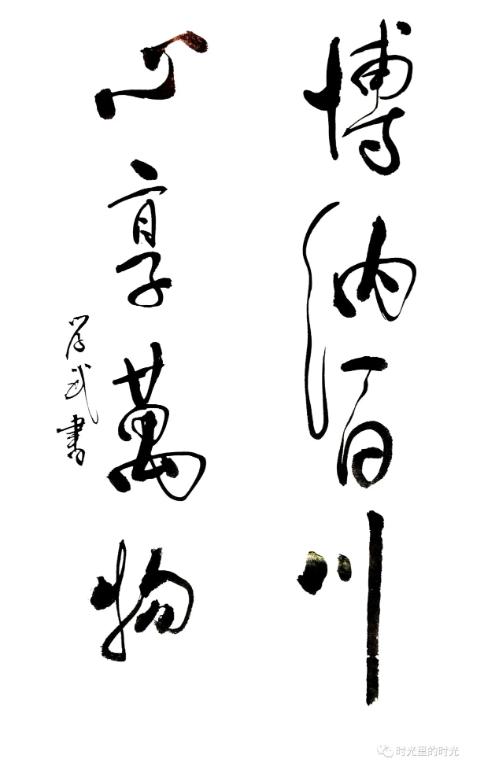 博纳百川
心享萬物
学武書
时光里的时光